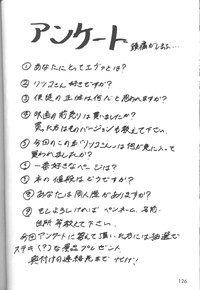 アンケート
① あなたにとってエヴァとは?
② リツコさん好きですか?
③ 使徒の正体は何だと思われますか?
④ 映画の前売りは買いましたか?
買った方はそのバージョンも教えて下さい。
⑤ 今回のこの本「リツコさん」は何が気に入って
買われましたか?
⑥ 一番好きなページは?
⑦ 本の値段はどうですか?
⑧ あなたは同人歴がありますか?
⑨ もしよろしければペンネーム、名前、
住所等教えて下さい。
今回アンケートに答えて頂いた方には抽選で
ステキ(?)な景品プレゼント。
奥付けの連絡先まで
126